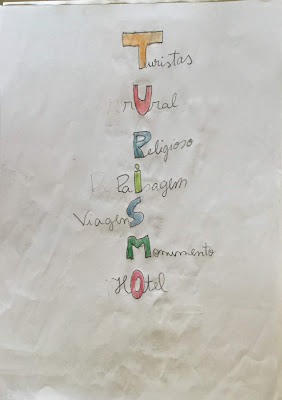 Turistas
rUral
Religioso
Paisagem
ViagenS
Monumento
HOtel